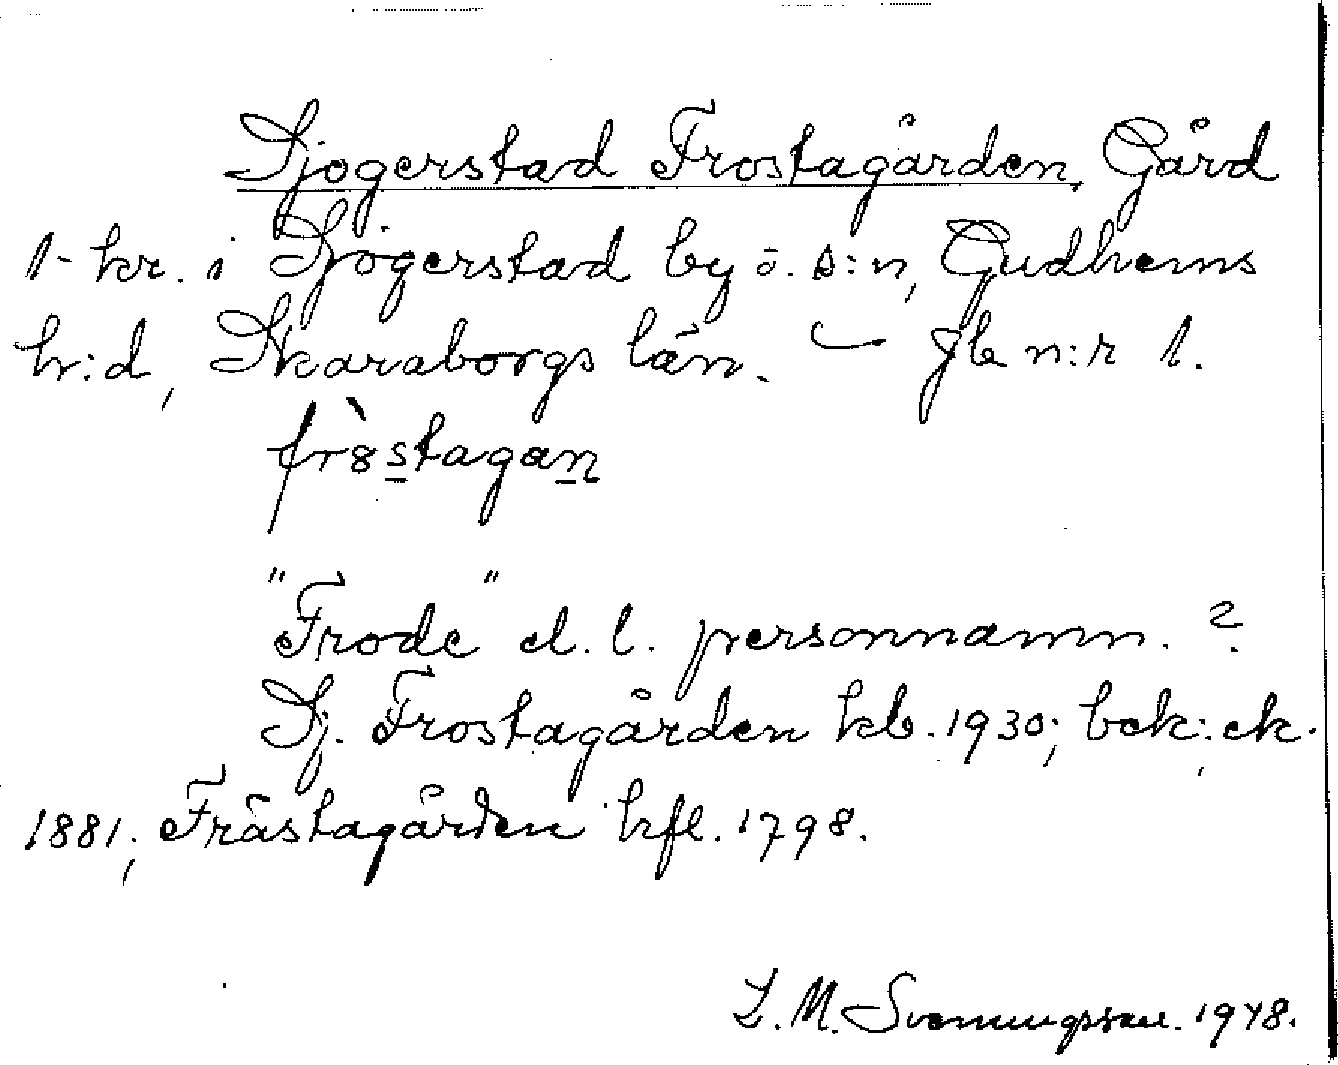 Sjogerstad Frostagården, Gård
1- kr. i Sjogerstad by o. s:n, Gudhems
hr:d, Skaraborgs län. — Jb n:r 1.
fr8̀stagan
"Frode" el. l. personnamn. ?
Sj. Frostagården kb. 1930; bek: ek.
1881; Fråstagården hfl. 1798.
L. M. Svenungsson. 1948.